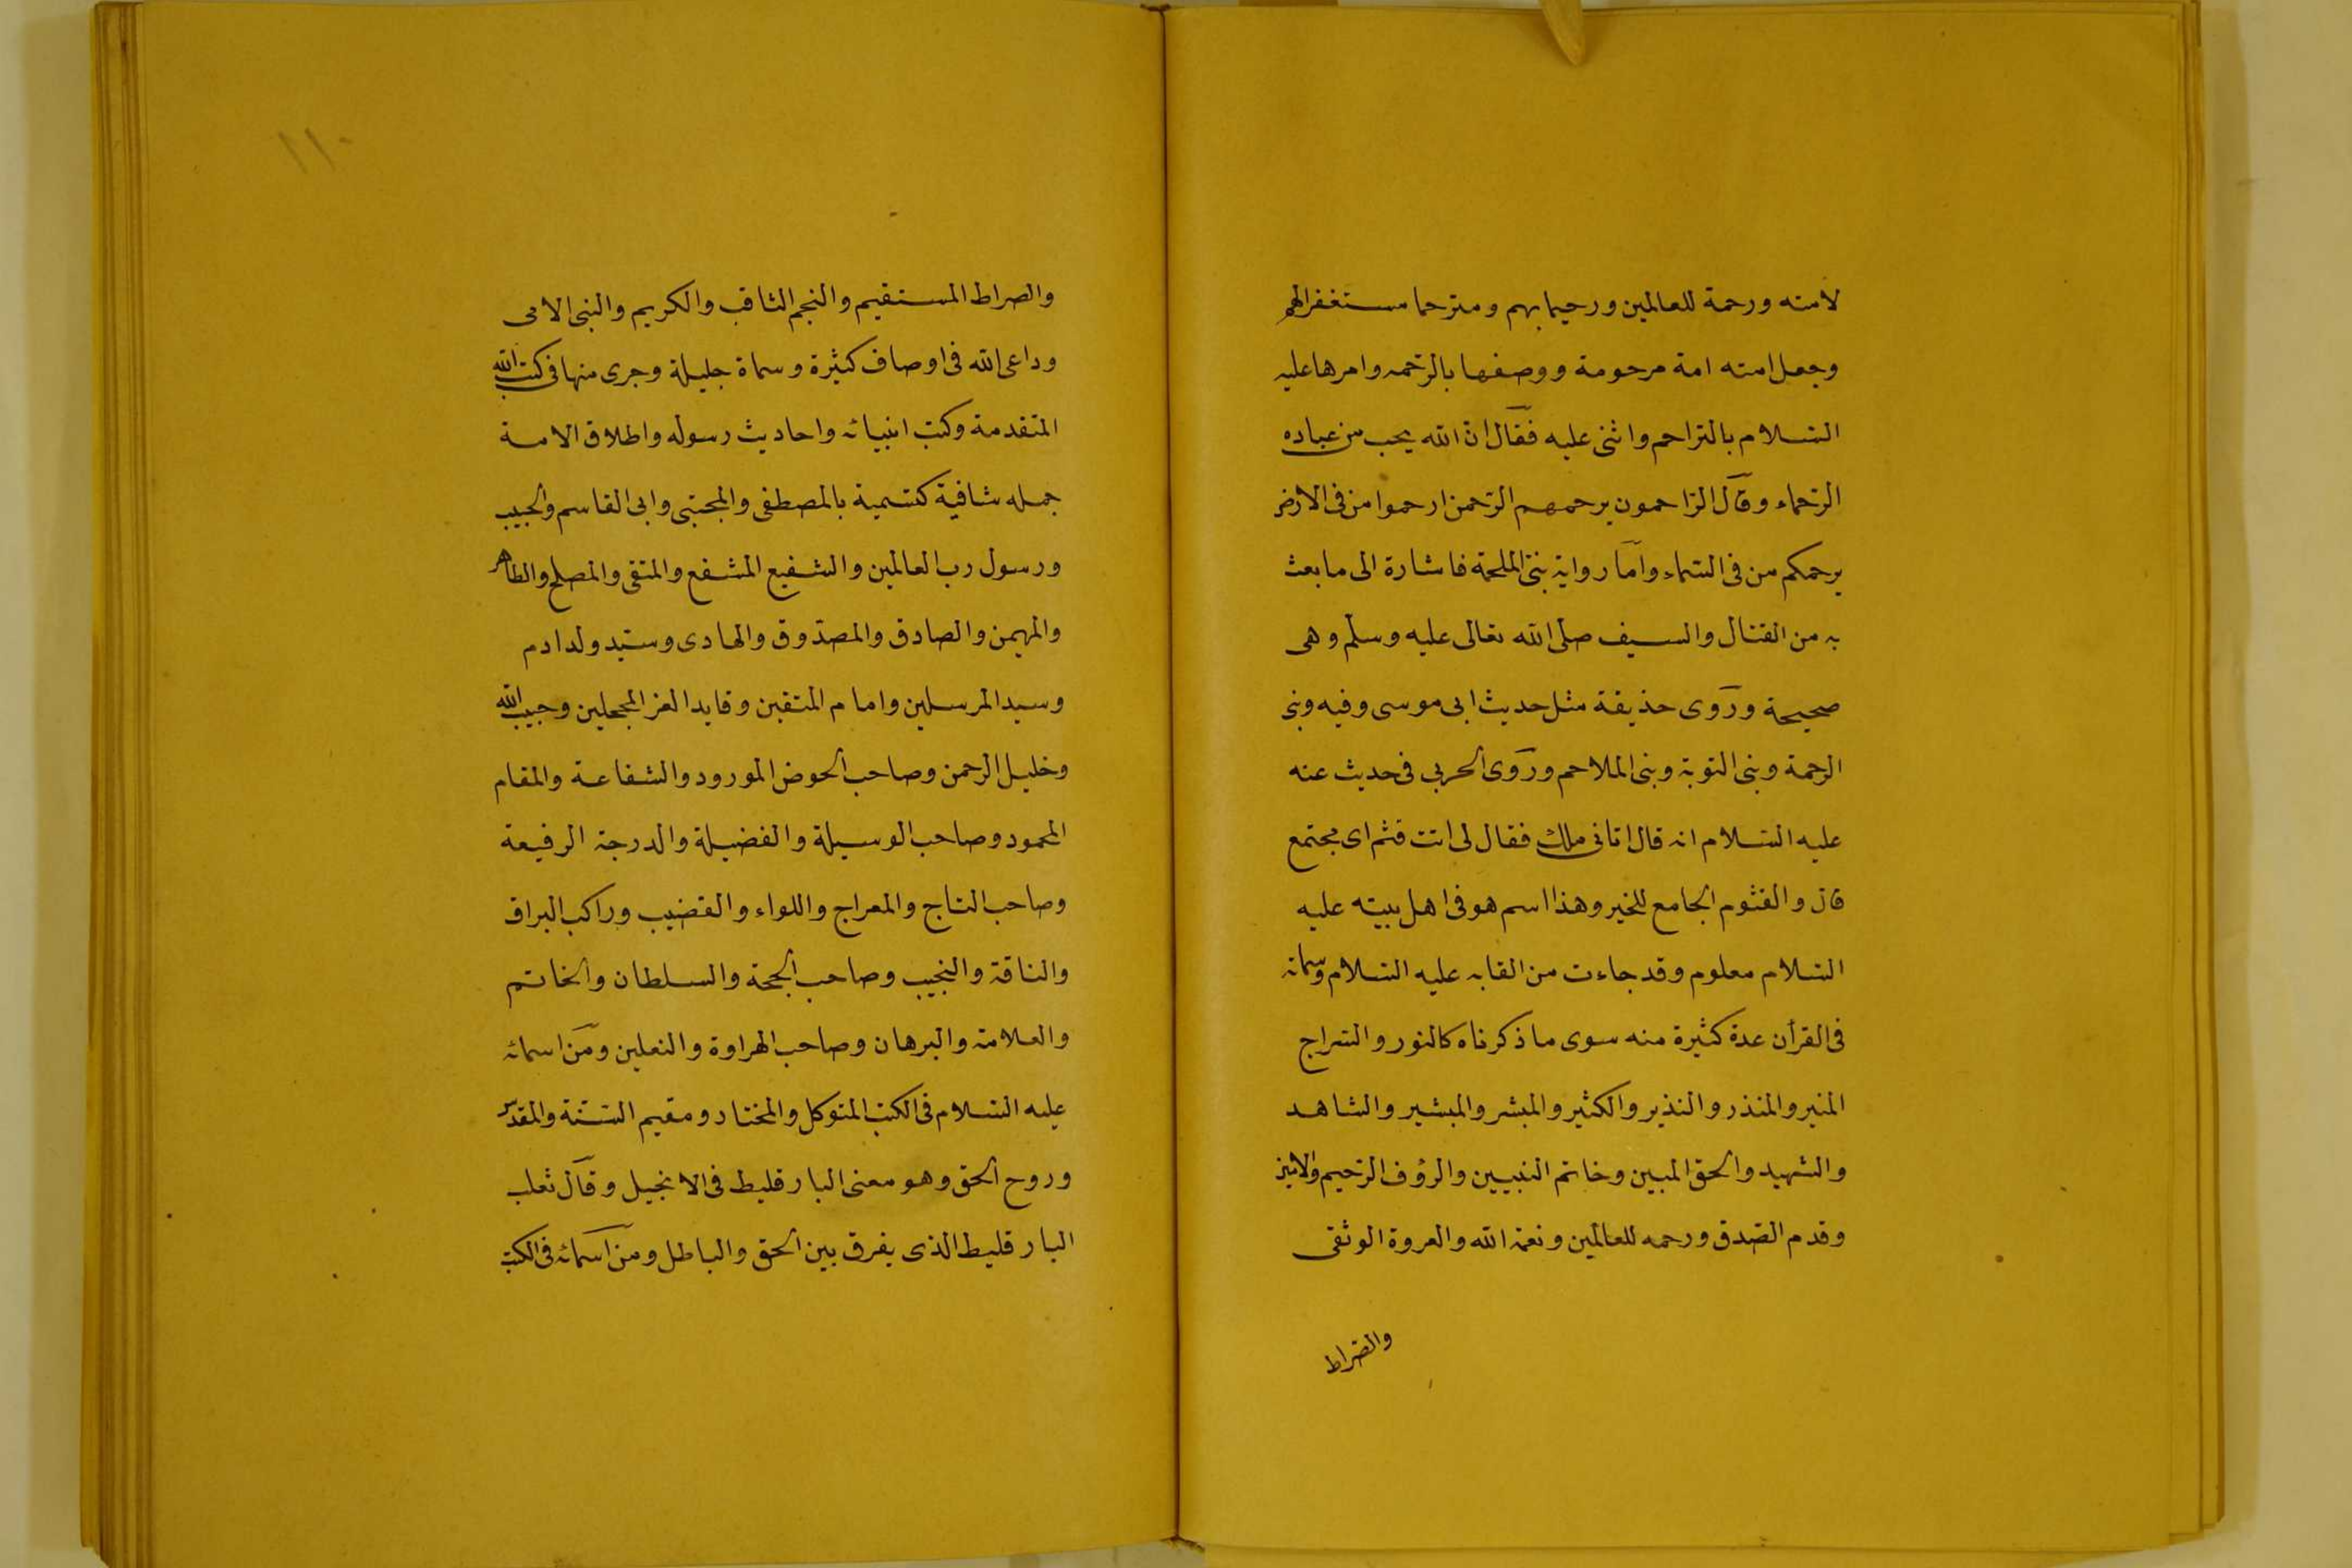 لامته ورحمة للعالمين ورحيما بهم ومترحما مستغفرالهم
وجعل امته امة مرحومة ووصفها بالرّحمه وامرها عليه
السّلام بالتراحم واثنى عليه فقال انّ الله يحب من عباده
الرّحماء وقال الرّاحمون يرحمهم الرّحمن ارحموا من فى الارض
يرحمكم من فى السّماء وامّا رواية بنى الملحمة فاشارة الى ما بعث
به من القتال والسيف صلّى الله تعالى عليه وسلّم وهى
صحيحة وروى حذيفة مثل حديث ابى موسى وفيه ونبى
الرحمة ونبى التوبة ونبى الملاحم وروى الحربى فى حديث عنه
عليه السّلام انه قال اتانى ملك فقال لى انت قثم اى مجتمع
قال والقثوم الجامع للخير وهذا اسم هو فى اهل بيته عليه
السّلام معلوم وقد جاءت من القابه عليه السّلام وسماته
فى القرأن عدة كثيرة منه سوى ما ذكرناه كالنور والسّراج
المنير والمنذر والنذير والكثير والمبشر والمبشير والشاهد
والشهيد والحق المبين وخاتم النبيين والرؤف الرّحيم والامين
وقدم الصّدق ورحمه للعالمين ونعمة الله والعروة الوثقى
والصّراط
١١٠
والصراط المستقيم والنجم الثاقب والكريم والنبى الامى
وداعى الله فى اوصاف كثيرة وسماة جليلة وجرى منها فى كتب الله
المتقدمة وكتب انبيائه واحاديث رسوله واطلاق الامة
جمله شافية كتسمية بالمصطفى والمجتبى وابى القاسم والحبيب
ورسول رب العالمين والشفيع المشفع والمتقى والمصلح والطاهر
والمهيمن والصادق والمصدّوق والهادى وسيّد ولد ادم
وسيد المرسلين وامام المتقين وقايد الغر المحجلين وحبيب الله
وخليل الرحمن وصاحب الحوض المورود والشفاعة والمقام
المحمود وصاحب الوسيلة والفضيلة والدرجة الرفيعة
وصاحب التاج والمعراج واللواء والقضيب وراكب البراق
والناقة والنجيب وصاحب الحجة والسلطان والخاتم
والعلامة والبرهان وصاحب الهراوة والنعلين ومن اسمائه
عليه السّلام فى الكتب المتوكل والمختار ومقيم السّنّة والمقدّس
وروح الحق وهو معنى البارقليط فى الانجيل وقال ثعلب
البارقليط الذى يفرق بين الحق والباطل ومن اسمائه فى الكتب